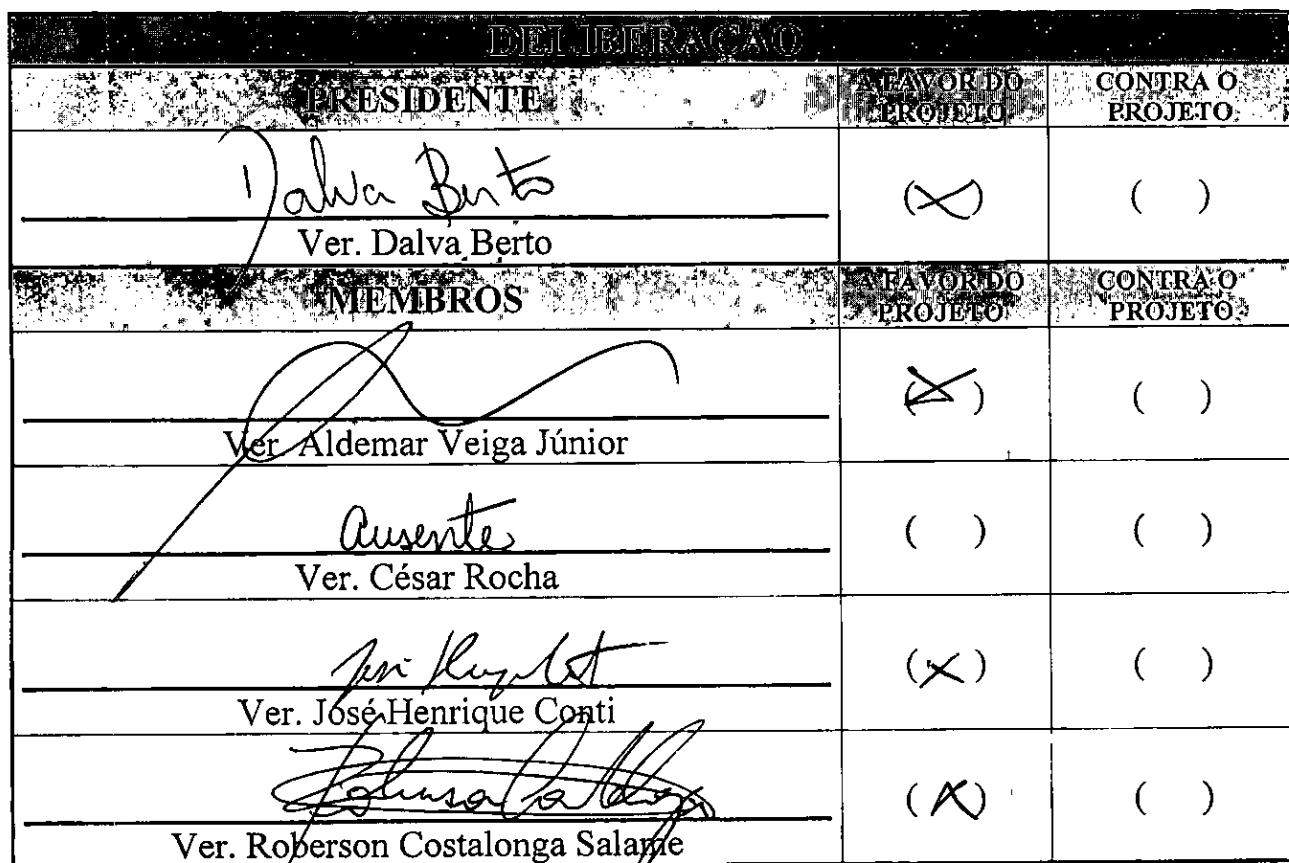 DELIBERAÇÃO
PRESIDENTE A FAVOR DO PROJETO CONTRA O PROJETO
Dalva Berto (X) ( )
Ver. Dalva Berto
MEMBROS A FAVOR DO PROJETO CONTRA O PROJETO
(X) ( )
Ver. Aldemar Veiga Júnior
Ausente ( ) ( )
Ver. César Rocha
(X) ( )
Ver. José Henrique Conti
(X) ( )
Ver. Roberson Costalonga Salame